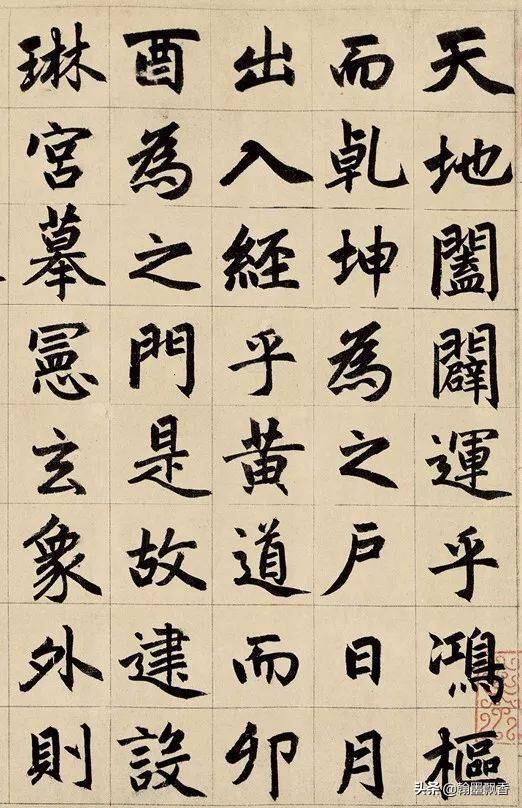 天地闔闢運乎鴻樞
而乾坤為之戶日月
出入經乎黃道而卯
酉為之門是故建設
琳宮摹憲玄象外則
头条@翰墨飘香